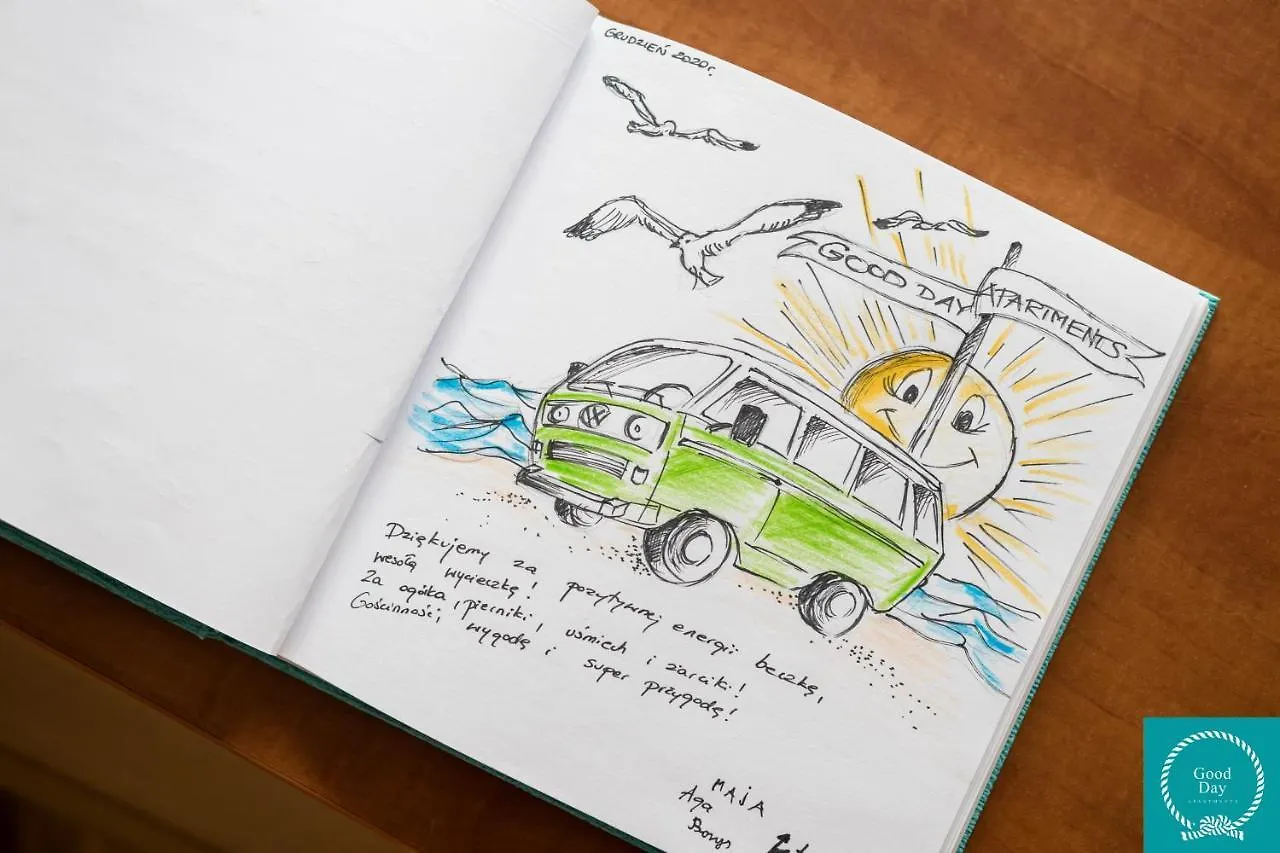 GRUDZIEŃ 2020r.
GOOD DAY APARTMENTS
VW
Dziękujemy za pozytywnej energii beczkę,
wesołą wycieczkę!
Za ogórka, pierniki, uśmiech i żarciki!
Gościnność, wygodę i super przygodę!
MAJA
Aga
Borys
Good
Day
APARTMENTS